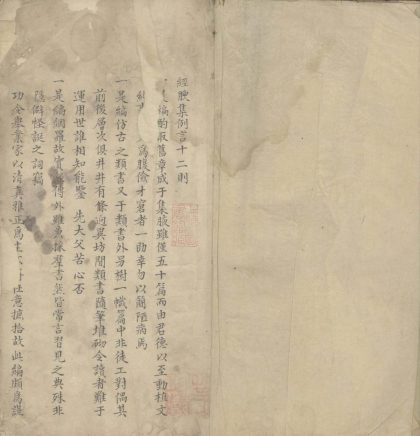 經腴集例言十二則
是編酌取舊章成于集腋雖僅五十篇而由君德以至動植文
為腹儉才窘者一助幸勿以簡陋病焉
一是編仿古之類書又于類書外另樹一幟篇中非徒工對偶其
前後層次俱井井有條迥異坊間類書隨筆堆砌令讀者難于
運用世誰相知能鑒 先大父苦心否
一是編網羅故實 傳外雖兼採羣書然皆常言習見之典殊非
隱僻怪誕之詞竊
功令舉業家以清真雅正為 任意摭拾故此編頗為謹